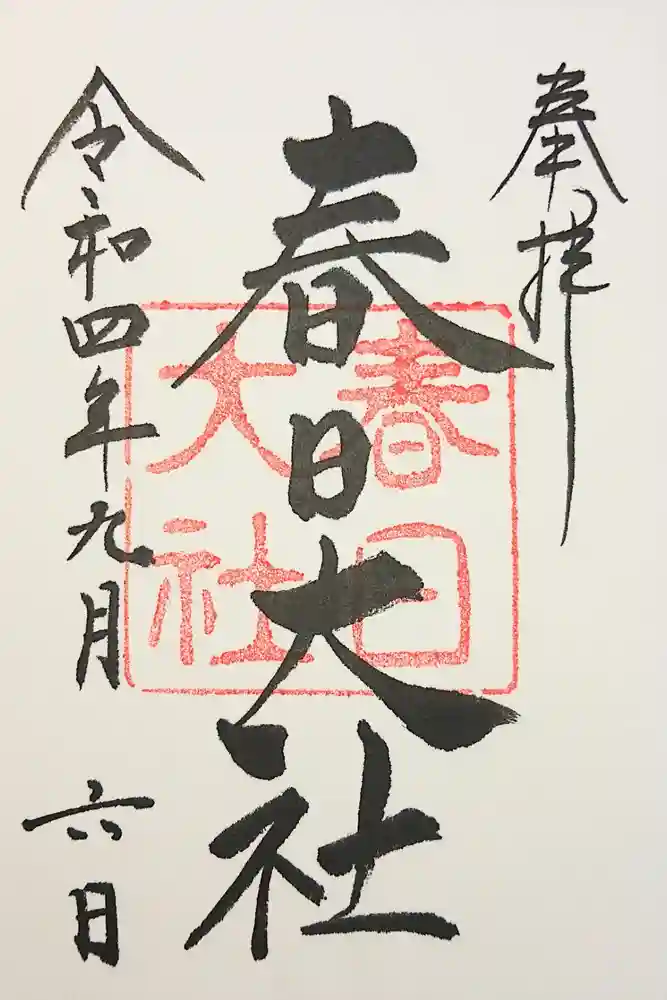 奉拝
春日大社
春日大社
令和四年九月六日